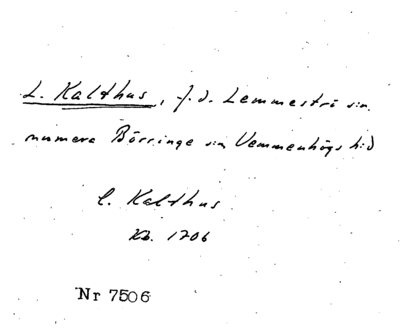 L. Kalthus, f.d. Lemmeströ sn.
numera Börringe sn Vemmenhögs hd
L. Kalthus
Kb. 1706
Nr 7506